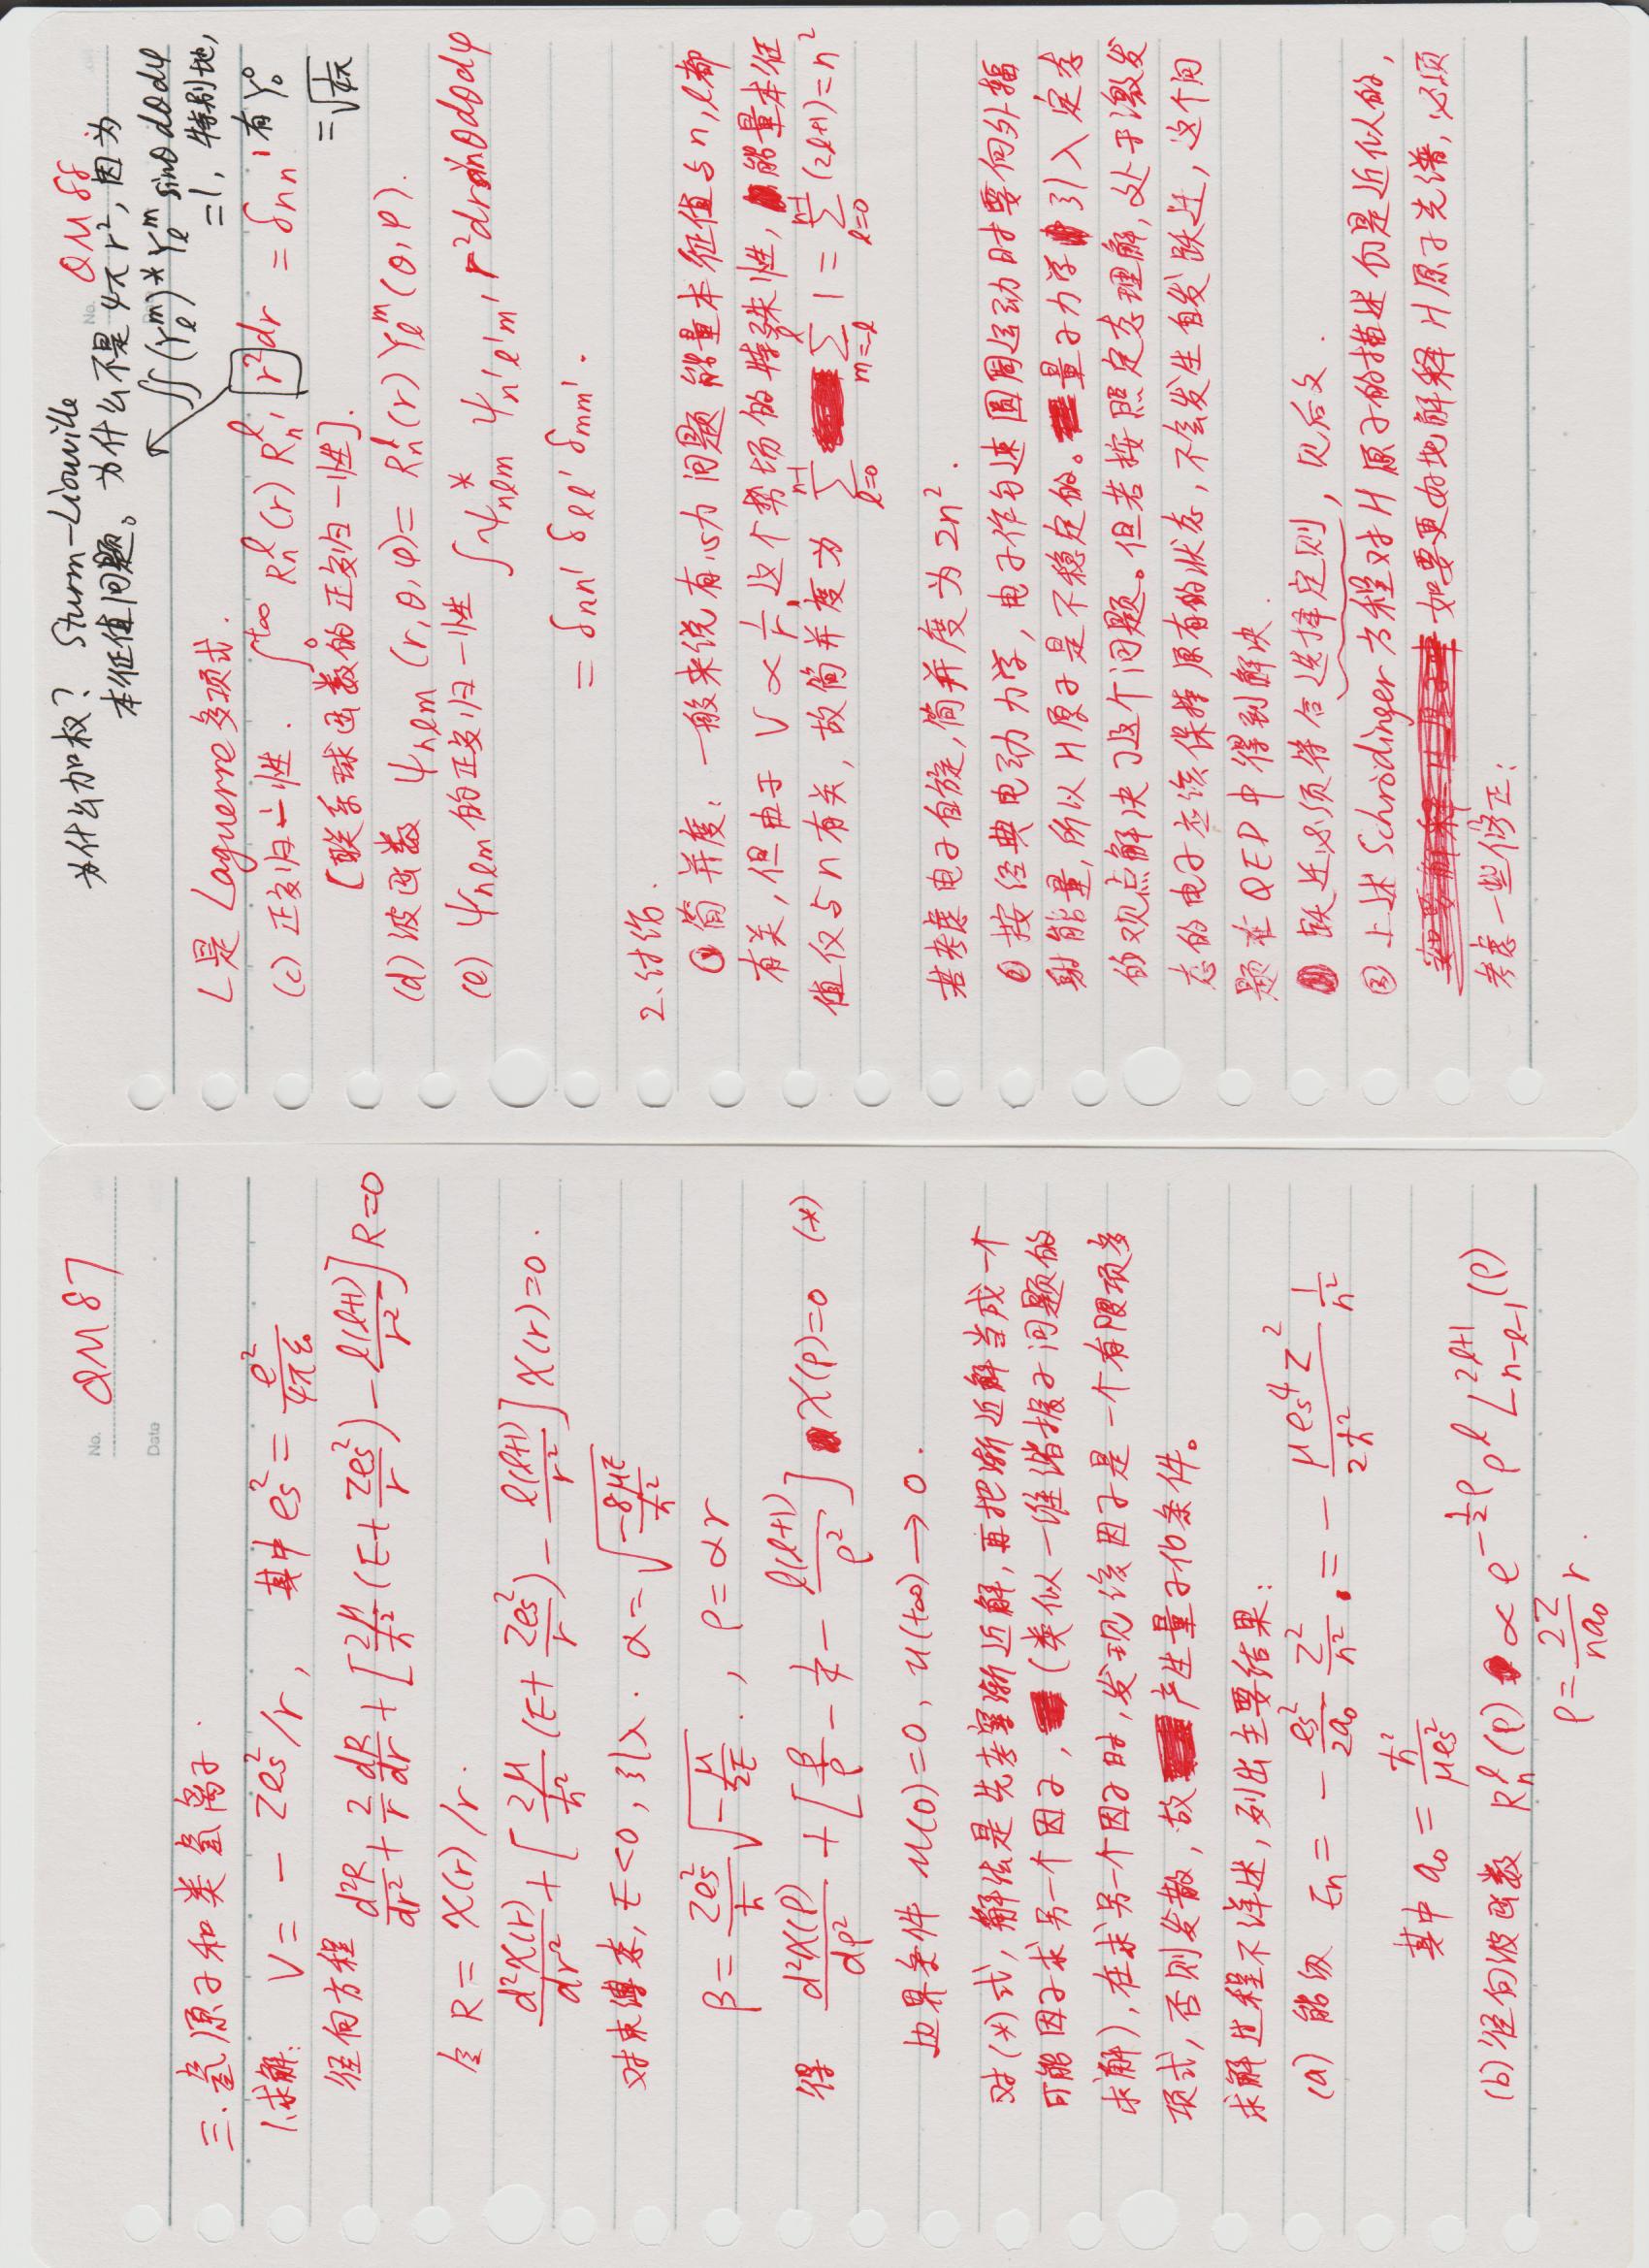 No. QM87
Date
三. 氢原子和类氢离子.
1.求解: V = - Zeₛ²/r, 其中 eₛ² = e²/(4πε₀)
径向方程 d²R/dr² + (2/r) dR/dr + [2μ/ħ² (E + Zeₛ²/r) - l(l+1)/r²] R = 0
令 R = χ(r)/r.
d²χ(r)/dr² + [2μ/ħ² (E + Zeₛ²/r) - l(l+1)/r²] χ(r) = 0.
对束缚态, E<0, 引入. α = √(-8μE/ħ²)
β = Zeₛ²/ħ √(-μ/2E)., ρ = αr
得 d²χ(ρ)/dρ² + [β/ρ - 1/4 - l(l+1)/ρ²] χ(ρ) = 0 (*)
边界条件 u(0)=0, u(+∞)→0.
对(*)式, 解法是先考察渐近解, 再把渐近解当成一个
可能因子求另一个因子, (类似一维谐振子问题的
求解), 在求另一个因子时, 发现该因子是一个有限项多
项式, 否则发散, 故产生量子化条件。
求解过程不详述, 列出主要结果:
(a) 能级 Eₙ = - eₛ²/2a₀ Z²/n² = - μeₛ⁴Z²/2ħ² 1/n²
其中 a₀ = ħ²/μeₛ²
(b) 径向波函数 Rₙˡ(ρ) ∝ e^(-½ρ) ρˡ L_{n-l-1}^{2l+1}(ρ)
ρ = 2Z/(na₀) r.
No. QM88.
为什么加权? Sturm-Liouville
本征值问题。为什么不是 4πr², 因为
∬(Yₗᵐ)* Yₗᵐ sinθdθdφ
=1, 特别地,
有 Y₀⁰
= √(1/4π)
L是 Laguerre多项式.
(c) 正交归一性. ∫₀^{+∞} Rₙˡ(r) Rₙ'ˡ r² dr = δnn'
[联系球函数的正交归一性].
(d) 波函数 ψnlm (r,θ,φ) = Rₙˡ(r) Yₗᵐ(θ,φ).
(e) ψnlm 的正交归一性 ∫ψ*nlm ψn'l'm' r²dr sinθdθdφ
= δnn' δll' δmm'.
2.讨论.
① 简并度: 一般来说有心力问题能量本征值与n,l都
有关, 但由于 V ∝ 1/r 这个势场的特殊性, 能量本征
值仅与n有关, 故简并度为 ∑_{l=0}^{n-1} ∑_{m=-l}^{l} 1 = ∑_{l=0}^{n-1} (2l+1) = n²
若考虑电子自旋, 简并度为 2n².
② 按经典电动力学, 电子作匀速圆周运动时要向外辐
射能量, 所以H原子是不稳定的。量子力学引入定态
的观点解决了这个问题。但若按照定态理解, 处于激发
态的电子应该保持原有的状态, 不会发生自发跃迁, 这个问
题在QED中得到解决.
跃迁必须符合选择定则, 见后文.
③ 上述 Schrödinger 方程对H原子的描述仍是近似的,
如要更好地解释H原子光谱, 必须
考虑一些修正: